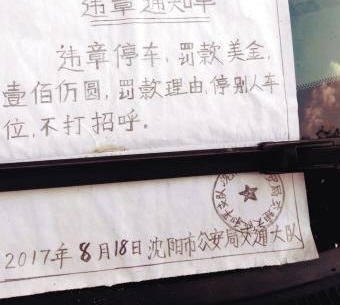 违章通知单
违章停车,罚款美金,
壹佰仿圆,罚款理由,停别人车
位,不打招呼。
2017年8月18日沈阳市公安局交通大队